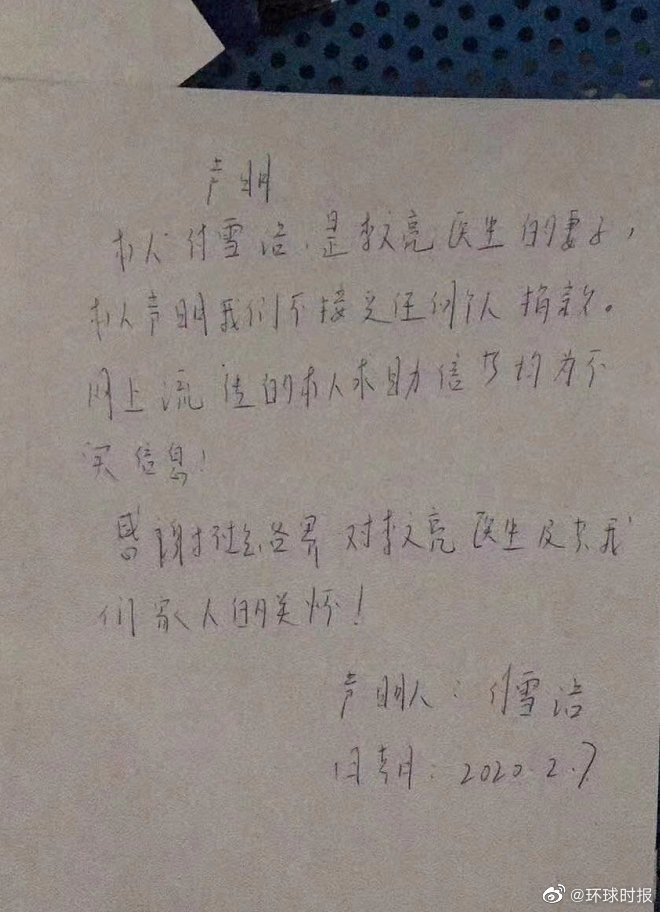 声明
本人付雪洁，是李文亮医生的妻子，
本人声明我们不接受任何个人捐款。
网上流传的本人求助信息均为不
实信息！
感谢社会各界对李文亮医生及其我
们家人的关怀！
声明人：付雪洁
日期：2020.2.7
@环球时报